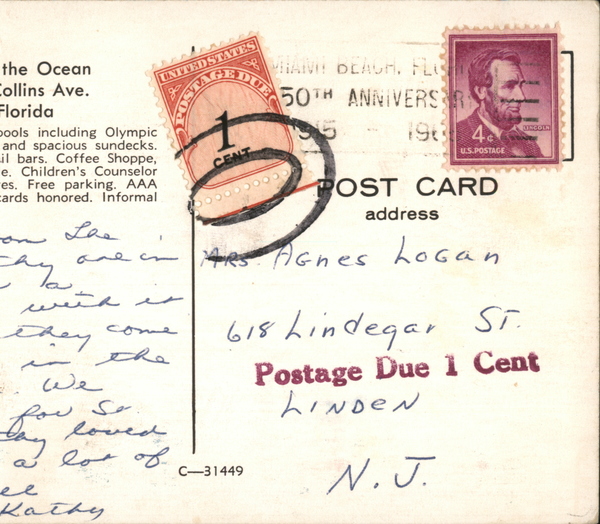 the Ocean
Collins Ave.
Florida
pools including Olympic
and spacious sundecks.
bars. Coffee Shoppe,
Children's Counselor
Free parking. AAA
cards honored. Informal
the
are in
a
with it
they come
in the
We
for St
loved
a lot of
Kathy
UNITED STATES
POSTAGE DUE
1
CENT
MIAMI BEACH, FLO
50TH ANNIVERSAR
1915 196
LINCOLN
4¢
U.S. POSTAGE
POST CARD
address
Mrs. Agnes Logan
618 Lindegar St.
Postage Due 1 Cent
LINDEN
N. J.
C—31449